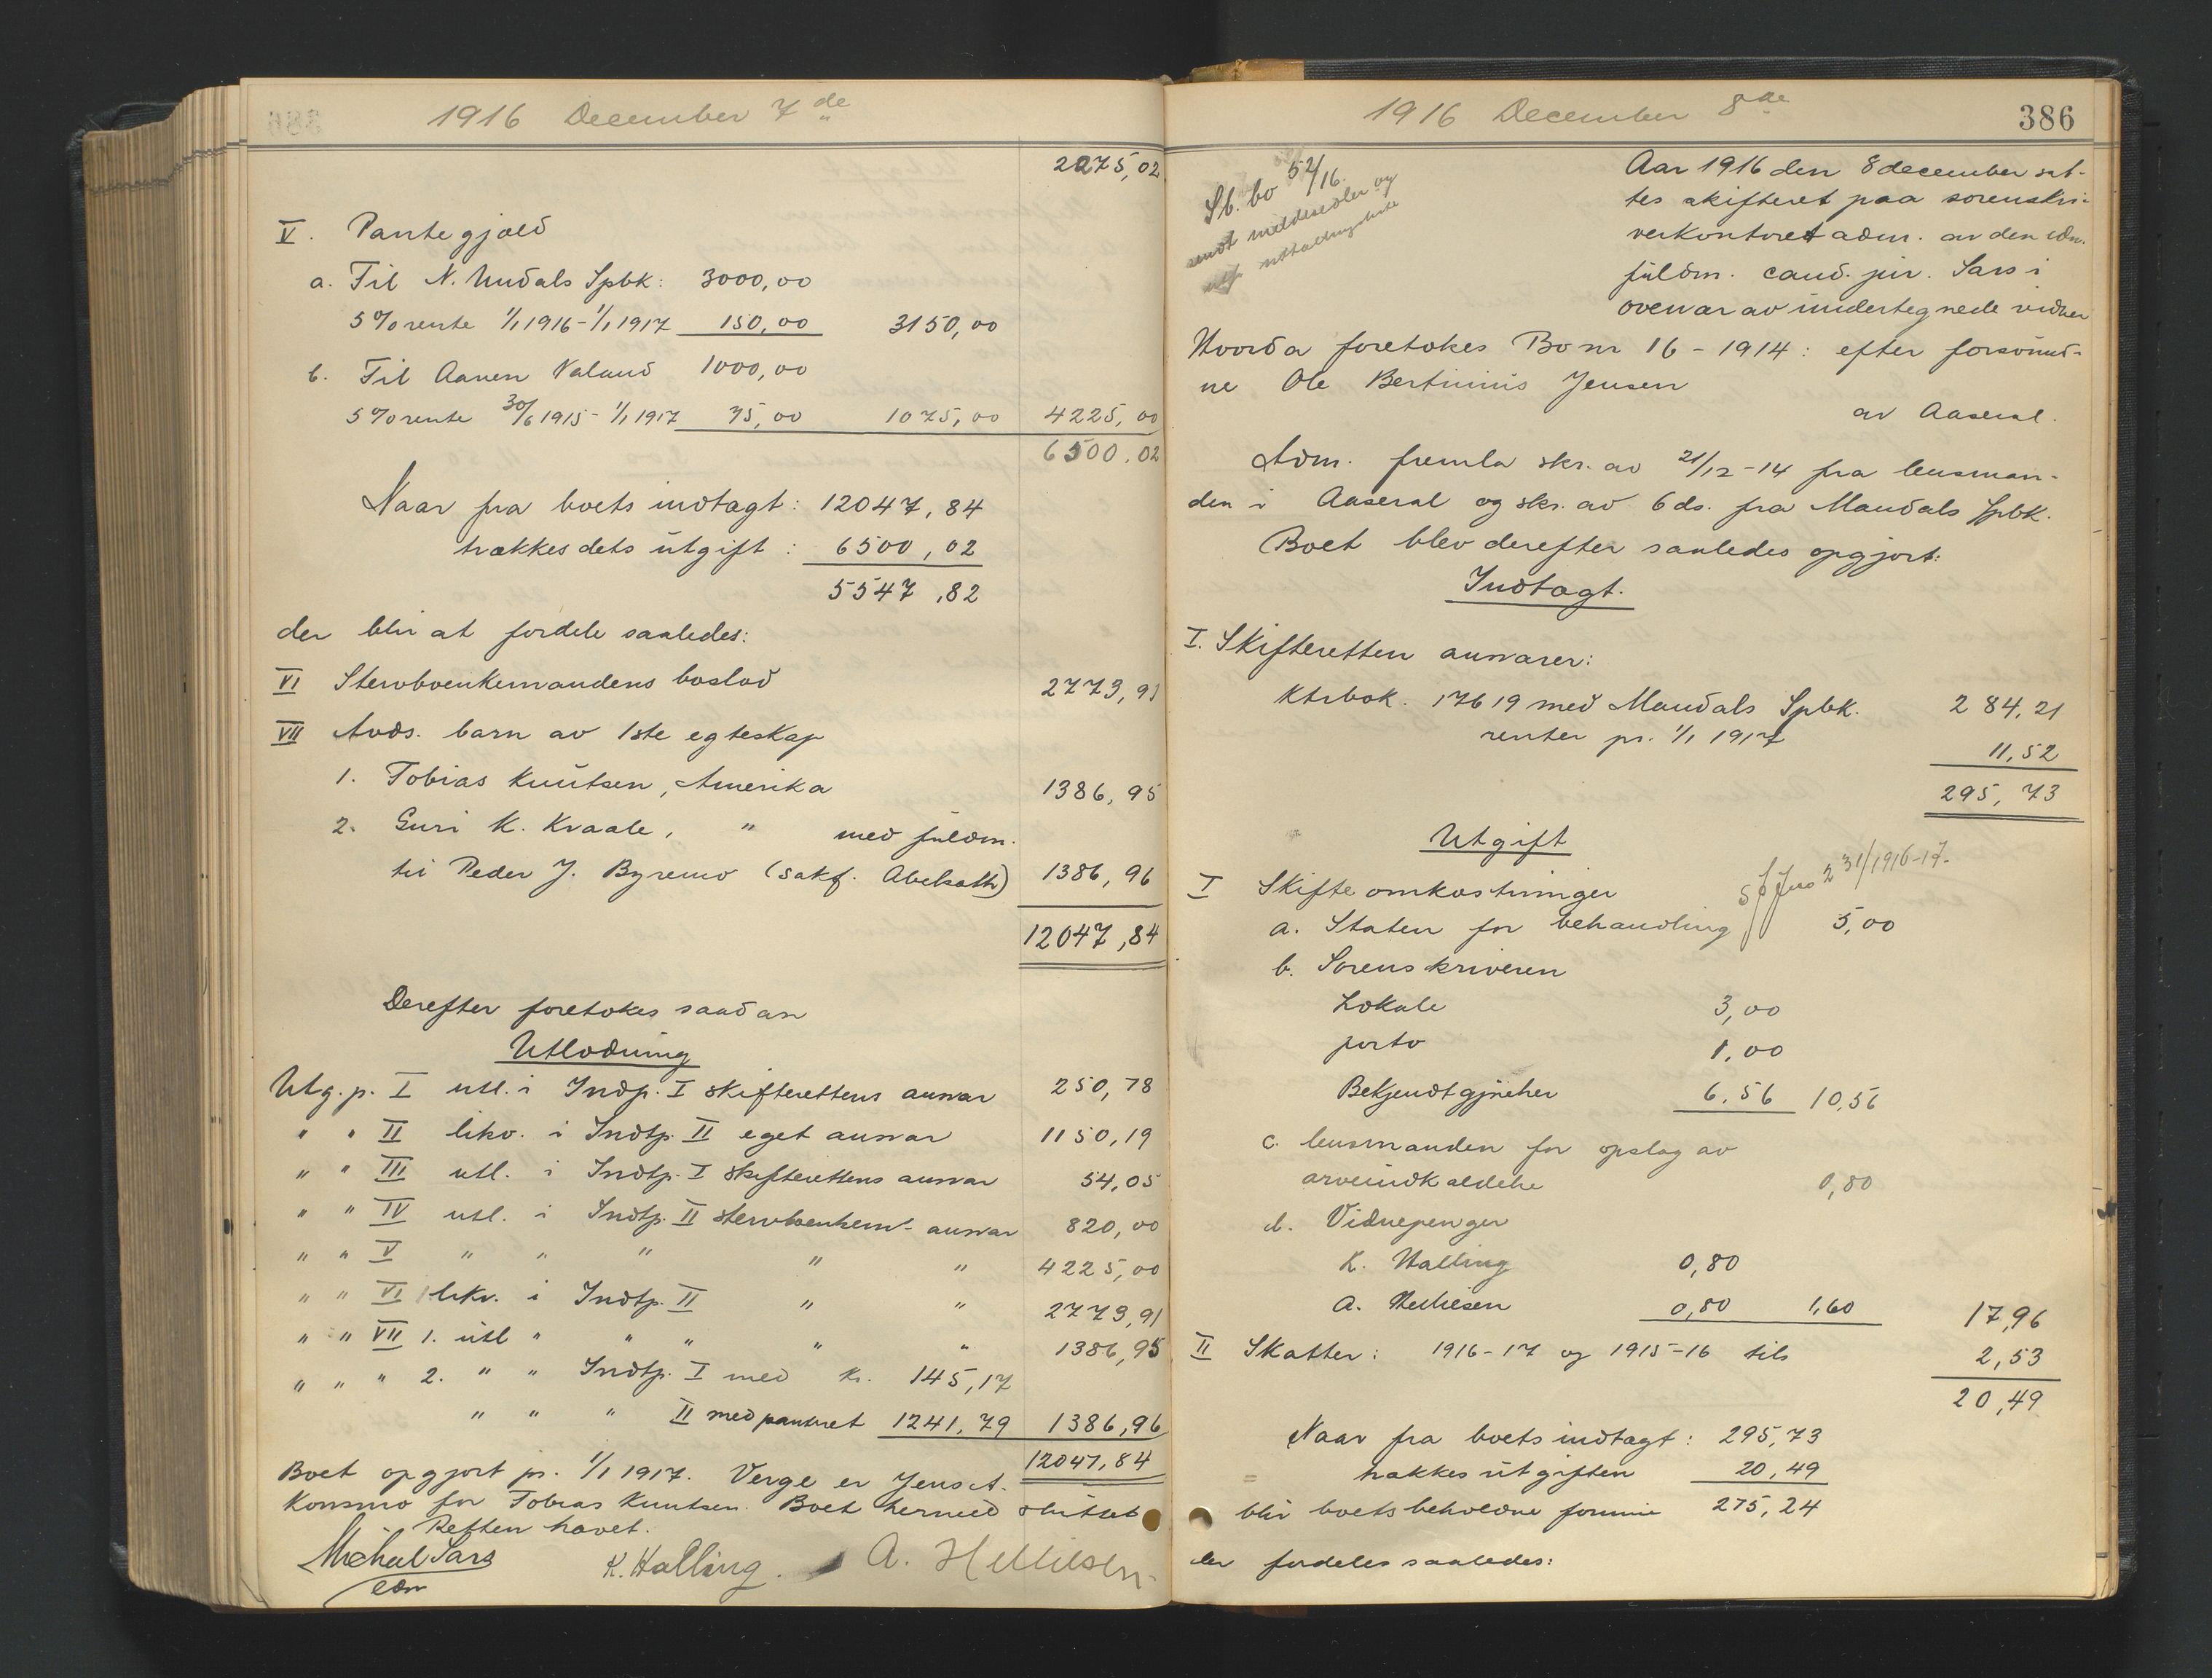 1916 December 7de
2275,02
V. Pantegjæld
a. Til N. Undals Spbk: 3000,00
5 % rente 1/1 1916 - 1/1 1917 150,00 3150,00
b. Til Aanen Valand 1000,00
5 % rente 30/6 1915 - 1/1 1917 75,00 1075,00 4225,00
6500,02
Naar fra boets indtægt: 12047,84
trækkes dets utgift: 6500,02
5547,82
der blir at fordele saaledes:
VI Stervboenkemandens boslod 2773,91
VII Avds. barn av 1ste egteskap
1. Tobias Knutsen, Amerika 1386,95
2. Guri K. Kvaale, " med fuldm.
til Peder J. Byremo (sakf. Abelseth) 1386,96
12047,84
Derefter foretokes saadan
Utlodning
Utg.p. I utl. i Indp. I skifterettens ansvar 250,78
" " II likv. i Indtp. II eget ansvar 1150,19
" " III utl. i Indtp. I skifterettens ansvar 54,05
" " IV utl. i Indtp. II stervboenkem. ansvar 820,00
" " V " " " " " 4225,00
" " VI likv. i Indtp. II " " 2773,91
" " VII 1. utl " " " " " 1386,95
" " " 2. " " Indtp. I med kr. 145,17
" " " II med panteret 1241,79 1386,96
12047,84
Boet opgjort pr. 1/1 1917. Verge er Jens A.
Konsmo for Tobias Knutsen. Boet hermed sluttet
Retten hævet.
Michal Sars
edn
K. Halling. A. Hellesen
1916 December 8de
386
Sb. bo 52/16.
sendt meldesedler og
Aar 1916 den 8 december sat-
tes skifteret paa sorenskri-
verkontoret adm. av den edsv.
fuldm. cand. jur. Sars i
overvær av undertegnede vidner
Hvorda foretokes Bo nr 16 - 1914: efter forsvund-
ne Ole Bertinius Jensen
av Aaseral.
Adm. fremla skr. av 21/12-14 fra lensman-
den i Aaseral og skr. av 6 ds. fra Mandals Spbk.
Boet blev derefter saaledes opgjort:
Indtægt.
I. Skifteretten ansvarer:
Ktrbok. 17619 med Mandals Spbk. 284,21
renter pr. 1/1 1917 11,52
295,73
Utgift
231/1916-17-
I Skifteomkostninger
a. Staten for behandling 5,00
b. Sorenskriveren
Lokale 3,00
porto 1,00
Bekjendtgjørelser 6,56 10,56
c. lensmanden for opslag av
arveindkaldelse 0,80
d. Vidnepenger
K. Halling 0,80
A. Hellesen 0,80 1,60 17,96
II Skatter: 1916-17 og 1915-16 tils 2,53
20,49
Naar fra boets indtægt: 295,73
trækkes utgiften 20,49
blir boets beholdne formue 275,24
der fordeles saaledes: